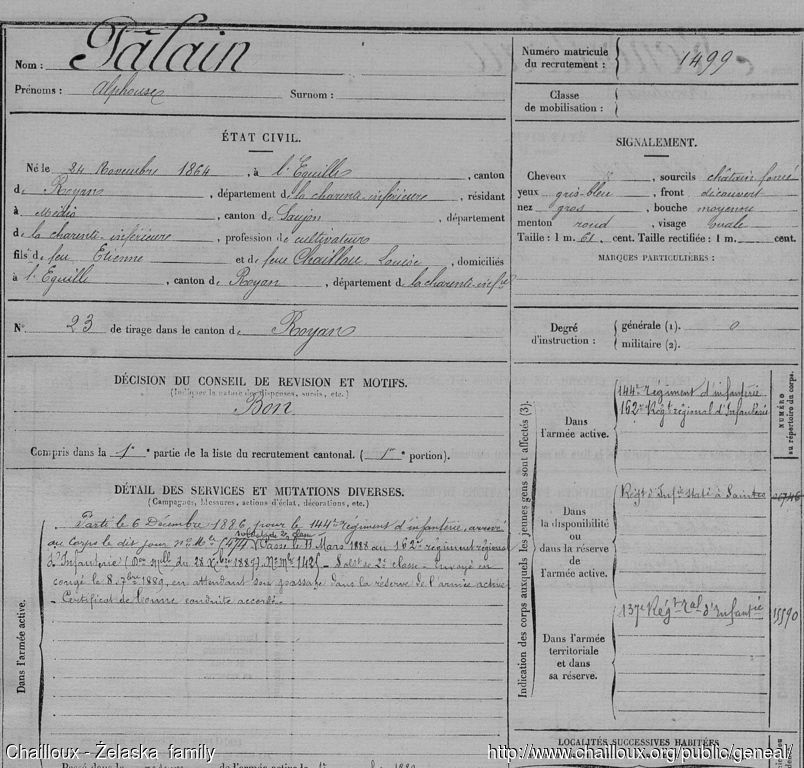 Nom : Pâlain
Prénoms : Alphonse Surnom :
ÉTAT CIVIL.
Né le 24 Novembre 1864, à l'Eguille, canton
de Royan, département de la charente-inférieure, résidant
à Médis, canton de Saujon, département
de la charente-inférieure, profession de cultivateur
fils de feu Etienne et de feue Chailloux Louise, domiciliés
à l'Eguille, canton de Royan, département de la charente-infre
N° 23 de tirage dans le canton de Royan
DÉCISION DU CONSEIL DE REVISION ET MOTIFS.
(Indiquer la nature des dispenses, sursis, etc.)
Bon
Compris dans la 1e partie de la liste du recrutement cantonal. ( 1re portion).
DÉTAIL DES SERVICES ET MUTATIONS DIVERSES.
(Campagnes, blessures, actions d'éclat, décorations, etc.)
Dans l'armée active.
Parti le 6 Décembre 1886 pour le 144e régiment d'infanterie, arrivé
au corps le dit jour n° Mle soldat de 2e classe
Passé le 11 Mars 1888 au 162e régiment régional
d'Infanterie ( du 28 Xbre 1887) No Mle 1425 - Soldt de 2e classe - Envoyé en
congé le 8. 7bre 1889, en attendant son passage dans la réserve de l'armée active
Certificat de bonne conduite accordé.
Passé dans la de l'armée active le 1er
Numéro matricule du recrutement : 1499
Classe de mobilisation :
SIGNALEMENT.
Cheveux, sourcils châtain foncé
yeux gris-bleu, front découvert
nez gros, bouche moyenne
menton rond, visage ovale
Taille : 1 m. 61 cent. Taille rectifiée : 1 m. cent.
MARQUES PARTICULIÈRES :
Degré d'instruction : générale (1). 0
militaire (2).
Indication des corps auxquels les jeunes gens sont affectés (3).
NUMÉRO au répertoire du corps.
Dans l'armée active.
144e régiment d'infanterie
162e Régt régional d'Infanterie
Dans la disponibilité ou dans la réserve de l'armée active.
Régt d'Infie staté à Saintes
Dans l'armée territoriale et dans sa réserve.
137e Régt ral d'Infantie 15590
LOCALITÉS SUCCESSIVES HABITÉES
Chailloux - Żelaska family
http://www.chailloux.org/public/geneal/